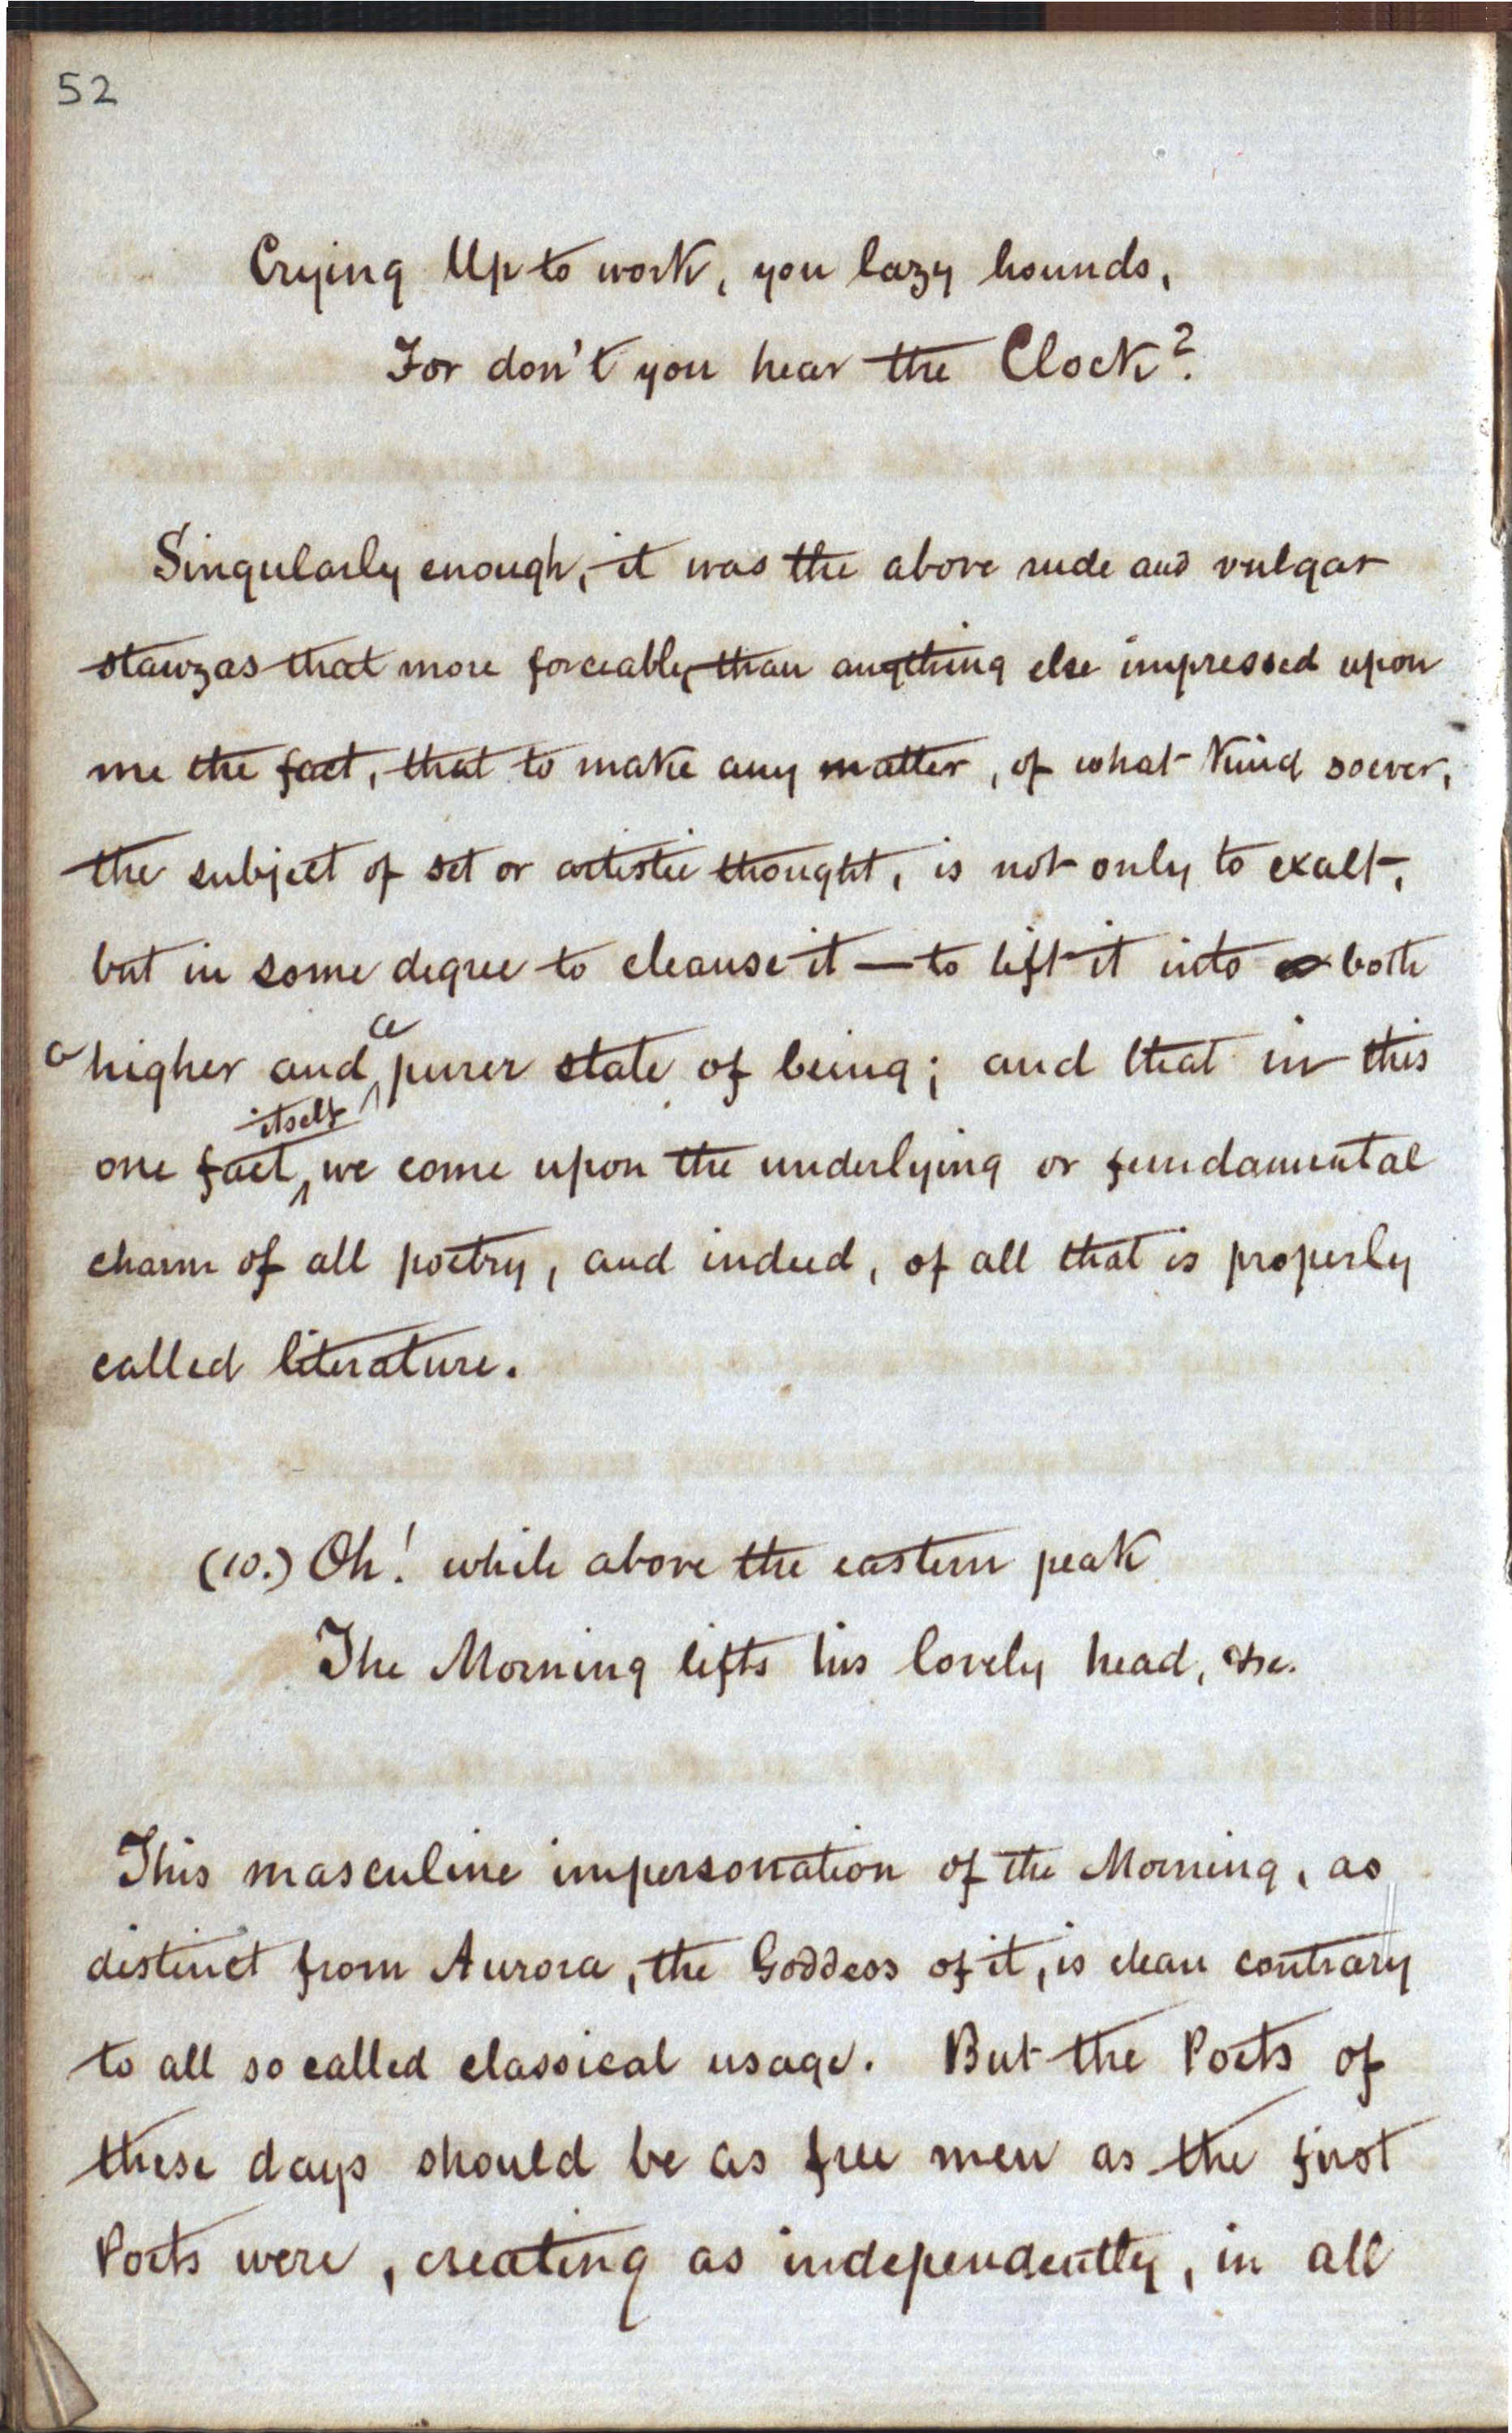 52
Crying Up to work, you lazy hounds,
For don't you hear the Clock?
Singularly enough, it was the above rude and vulgar
stanzas that more forceably than anything else impressed upon
me the fact, that to make any matter, of what kind soever,
the subject of set or artistic thought, is not only to exalt,
but in some degree to cleanse it — to lift it into both
a higher and a purer state of being; and that in this
one fact itself, we come upon the underlying or fundamental
charm of all poetry, and indeed, of all that is properly
called literature.
(10.) Oh! while above the eastern peak
The Morning lifts his lovely head, &c.
This masculine impersonation of the Morning, as
distinct from Aurora, the Goddess of it, is clean contrary
to all so called classical usage. But the Poets of
these days should be as free men as the first
Poets were, creating as independently, in all